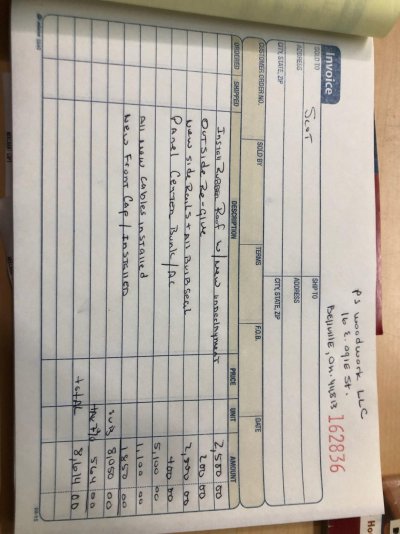 Invoice
PS Woodwork LLC
16 E. Ogle St.
Bellville, OH. 44813
162836
SOLD TO
Scot
SHIP TO
ADDRESS
ADDRESS
CITY, STATE, ZIP
CITY, STATE, ZIP
CUSTOMER ORDER NO. SOLD BY TERMS F.O.B. DATE
ORDERED SHIPPED DESCRIPTION PRICE UNIT AMOUNT
Install Rubber Roof w/ New underlayment 2,500 00
Outside Re-Glue 200 00
New side Rails + All Bulb seal 2,000 00
Panel Center Bunk / AC 400 00
5,100 00
All New Cables installed 1,100 00
New Front Cap / Installed 1,850 00
sub 8,050 00
564 00
total 8,614 00